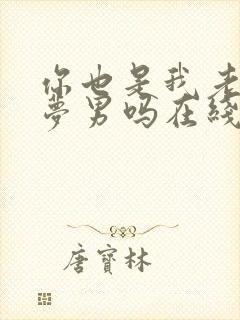 你也是我老
梦男吗在线
唐宝林